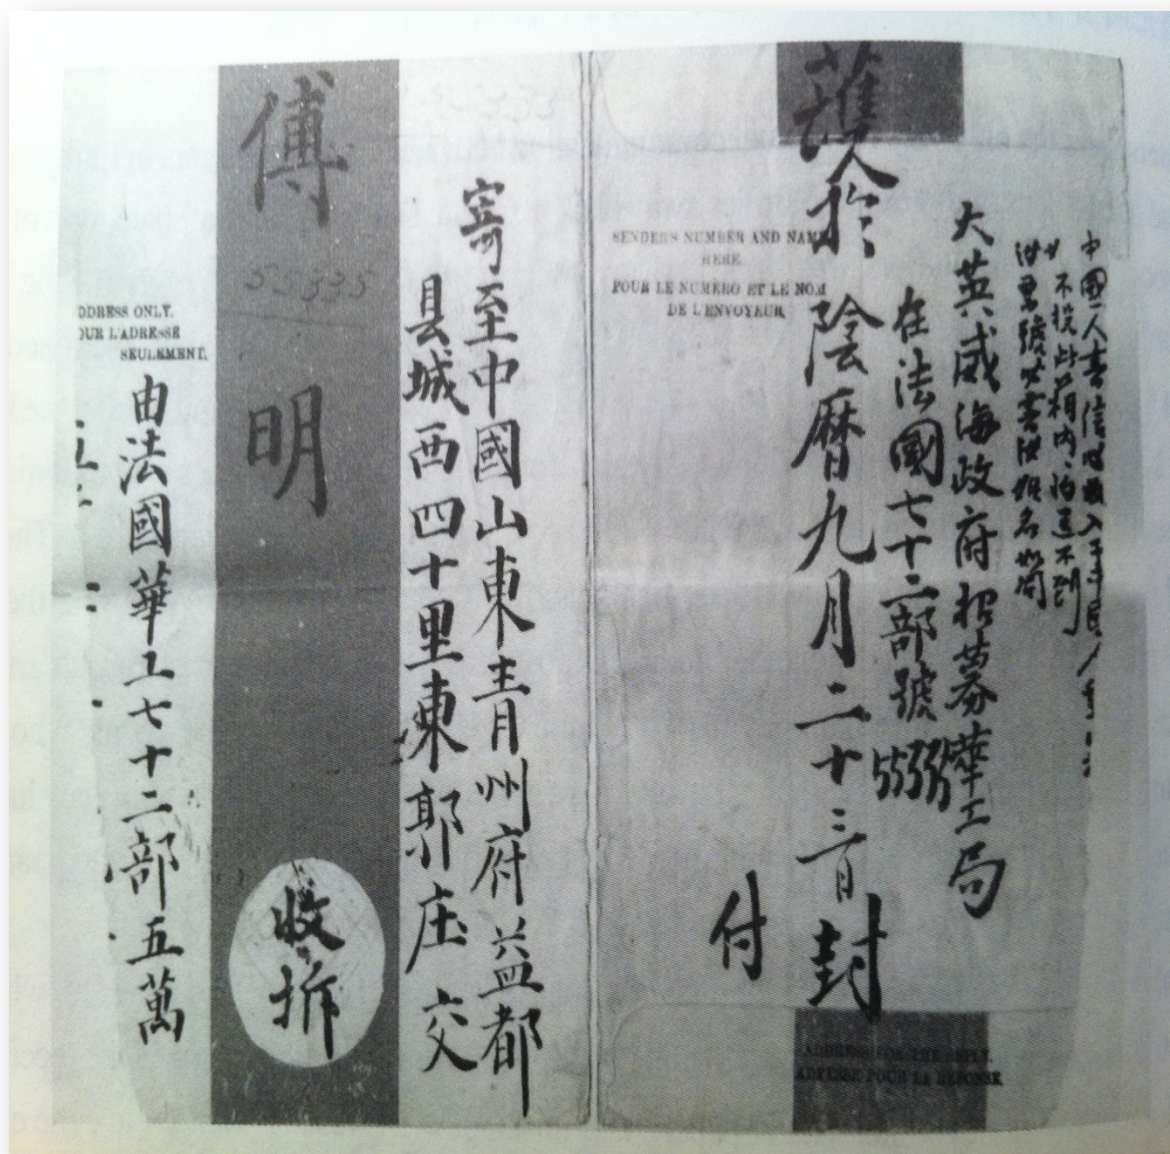 中國人書信
不投此箱內怕送不到
大英威海政府招募華工局
在法國七十二部號
護
於 陰曆九月二十三日封
付
SENDER'S NUMBER AND NAME
HERE
POUR LE NUMÉRO ET LE NOM
DE L'ENVOYEUR
ADDRESS FOR THE REPLY.
ADRESSE POUR LA RÉPONSE
寄至中國山東青州府益都
县城西四十里東郭庄交
傅明
55335
收拆
DDRESS ONLY.
OUR L'ADRESSE
SEULEMENT.
由法國華工七十二部五萬